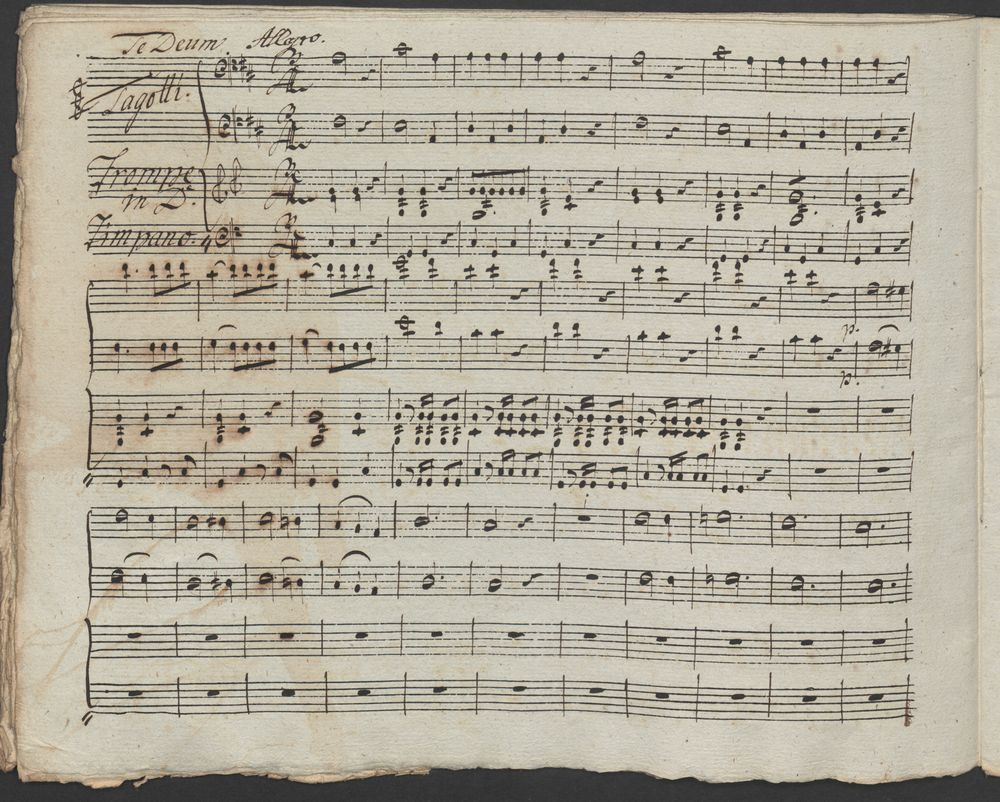 Te Deum. Allegro.
Fagotti.
Trompe
in D.
Timpano.
p.
p.